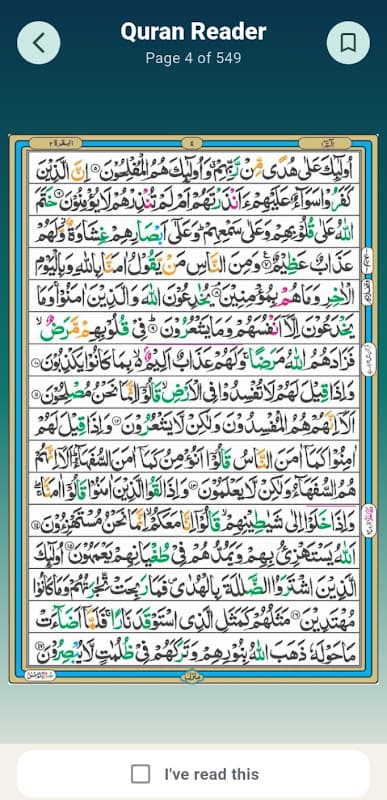 Quran Reader
Page 4 of 549
البقرة ٢
٤
اُولٰٓئِكَ عَلٰى هُدًى مِّنْ رَّبِّهِمْ وَاُولٰٓئِكَ هُمُ الْمُفْلِحُوْنَ ۵ اِنَّ الَّذِيْنَ
كَفَرُوْا سَوَآءٌ عَلَيْهِمْ ءَاَنْذَرْتَهُمْ اَمْ لَمْ تُنْذِرْهُمْ لَا يُؤْمِنُوْنَ ۶ خَتَمَ
اللّٰهُ عَلٰى قُلُوْبِهِمْ وَعَلٰى سَمْعِهِمْ وَعَلٰٓى اَبْصَارِهِمْ غِشَاوَةٌ وَّلَهُمْ
عَذَابٌ عَظِيْمٌ ۷ وَمِنَ النَّاسِ مَنْ يَّقُوْلُ اٰمَنَّا بِاللّٰهِ وَبِالْيَوْمِ
الْاٰخِرِ وَمَا هُمْ بِمُؤْمِنِيْنَ ۸ يُخٰدِعُوْنَ اللّٰهَ وَالَّذِيْنَ اٰمَنُوْا وَمَا
يَخْدَعُوْنَ اِلَّآ اَنْفُسَهُمْ وَمَا يَشْعُرُوْنَ ۹ فِيْ قُلُوْبِهِمْ مَّرَضٌ
فَزَادَهُمُ اللّٰهُ مَرَضًا وَلَهُمْ عَذَابٌ اَلِيْمٌ بِمَا كَانُوْا يَكْذِبُوْنَ ۱۰
وَاِذَا قِيْلَ لَهُمْ لَا تُفْسِدُوْا فِي الْاَرْضِ قَالُوْٓا اِنَّمَا نَحْنُ مُصْلِحُوْنَ ۱۱
اَلَآ اِنَّهُمْ هُمُ الْمُفْسِدُوْنَ وَلٰكِنْ لَّا يَشْعُرُوْنَ ۱۲ وَاِذَا قِيْلَ لَهُمْ
اٰمِنُوْا كَمَآ اٰمَنَ النَّاسُ قَالُوْٓا اَنُؤْمِنُ كَمَآ اٰمَنَ السُّفَهَآءُ اَلَآ اِنَّهُمْ
هُمُ السُّفَهَآءُ وَلٰكِنْ لَّا يَعْلَمُوْنَ ۱۳ وَاِذَا لَقُوا الَّذِيْنَ اٰمَنُوْا قَالُوْٓا اٰمَنَّا
وَاِذَا خَلَوْا اِلٰى شَيٰطِيْنِهِمْ قَالُوْٓا اِنَّا مَعَكُمْ اِنَّمَا نَحْنُ مُسْتَهْزِءُوْنَ ۱۴
اَللّٰهُ يَسْتَهْزِئُ بِهِمْ وَيَمُدُّهُمْ فِيْ طُغْيَانِهِمْ يَعْمَهُوْنَ ۱۵ اُولٰٓئِكَ
الَّذِيْنَ اشْتَرَوُا الضَّلٰلَةَ بِالْهُدٰى فَمَا رَبِحَتْ تِّجَارَتُهُمْ وَمَا كَانُوْا
مُهْتَدِيْنَ ۱۶ مَثَلُهُمْ كَمَثَلِ الَّذِي اسْتَوْقَدَ نَارًا فَلَمَّآ اَضَآءَتْ
مَا حَوْلَهٗ ذَهَبَ اللّٰهُ بِنُوْرِهِمْ وَتَرَكَهُمْ فِيْ ظُلُمٰتٍ لَّا يُبْصِرُوْنَ ۱۷
I've read this